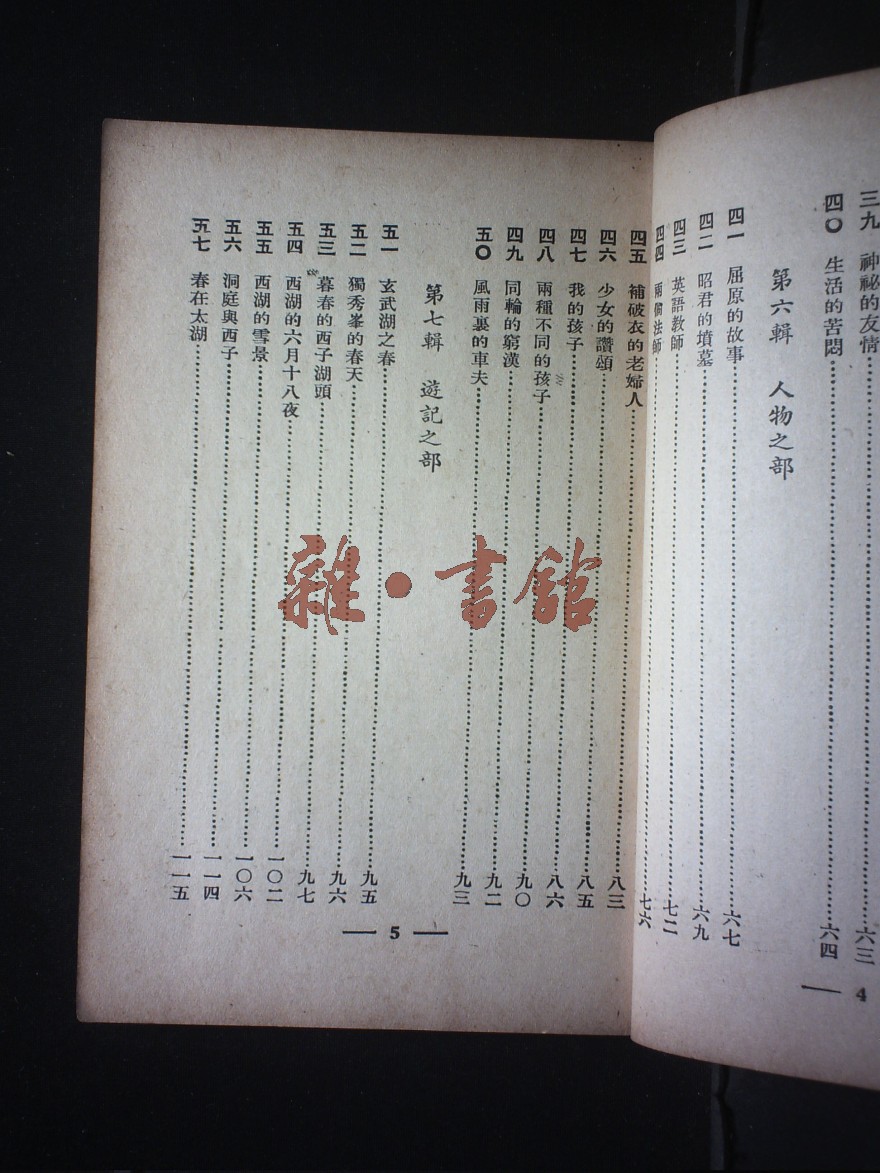 三九 神祕的友情……六三
四〇 生活的苦悶……六四
第六輯 人物之部
四一 屈原的故事……六七
四二 昭君的墳墓……六九
四三 英語教師……七二
四四 兩個法師……七六
4
四五 補破衣的老婦人……八三
四六 少女的讚頌……八五
四七 我的孩子……八六
四八 兩種不同的孩子……九〇
四九 同輪的窮漢……九二
五〇 風雨裏的車夫……九三
第七輯 遊記之部
五一 玄武湖之春……九五
五二 獨秀峯的春天……九六
五三 暮春的西子湖頭……九七
五四 西湖的六月十八夜……一〇二
五五 西湖的雪景……一〇六
五六 洞庭與西子……一一四
五七 春在太湖……一一五
5
雜·書館